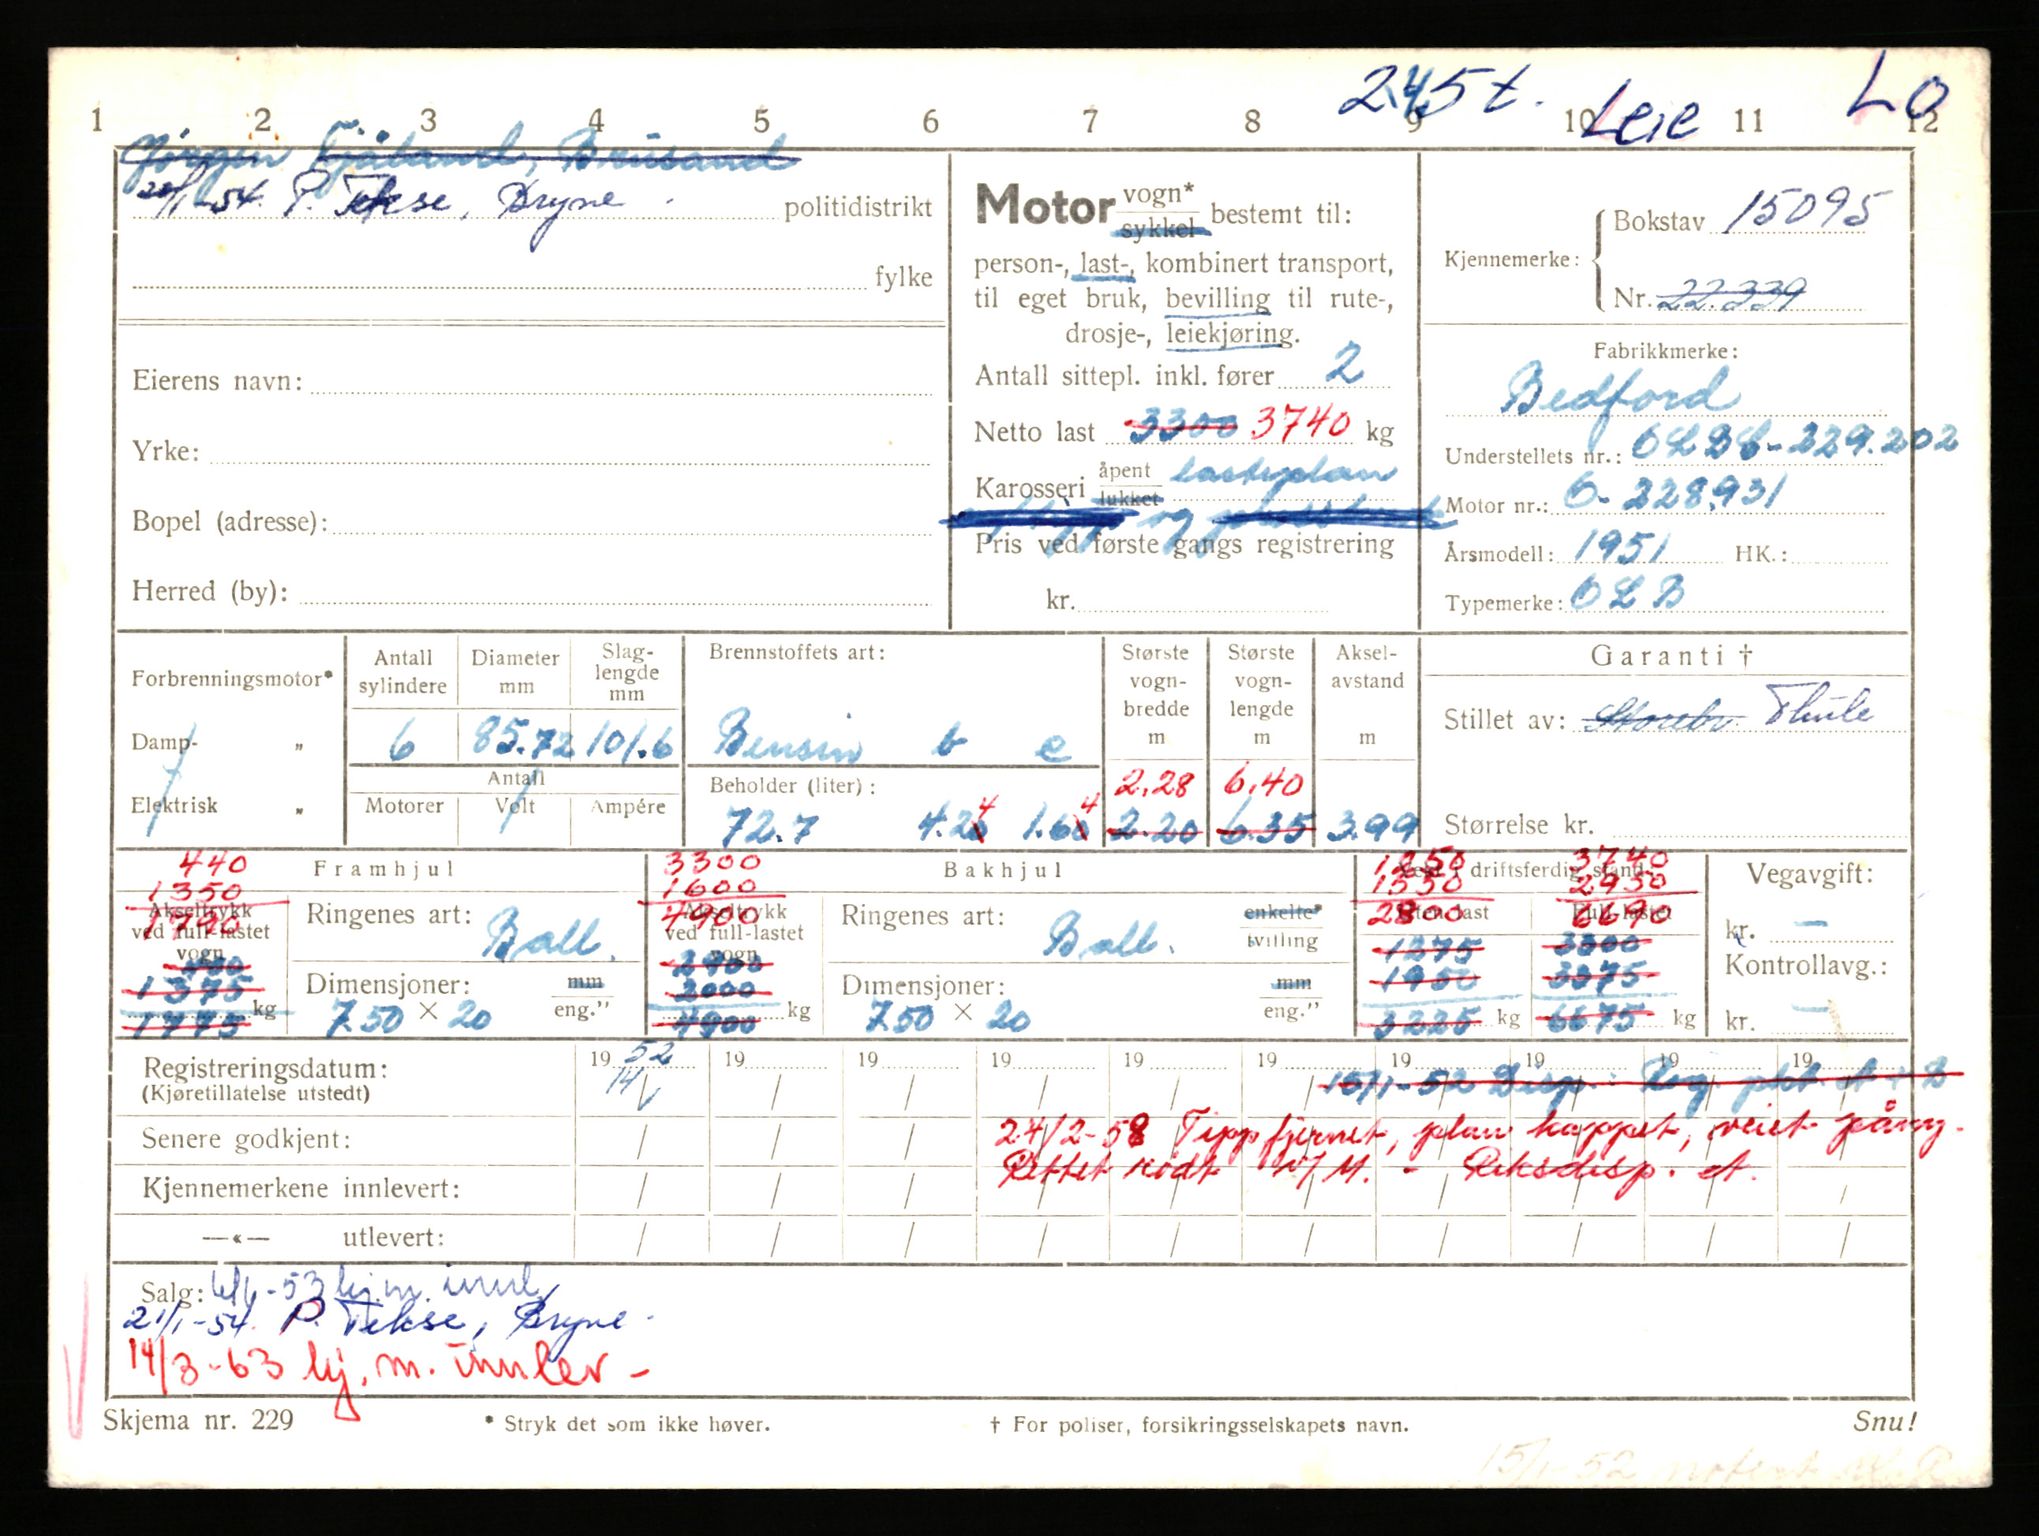 2.45 t. Leie Lo
1 2 3 4 5 6 7 8 9 10 11 12
Jørgen Fjåland, Brusand
20/1-54. P. Tekse, Bryne. politidistrikt
fylke
Eierens navn:
Yrke:
Bopel (adresse):
Herred (by):
Motor vogn* sykkel bestemt til:
person-, last-, kombinert transport,
til eget bruk, bevilling til rute-,
drosje-, leiekjøring.
Antall sittepl. inkl. fører 2
Netto last 3300 3740 kg
Karosseri åpent lukket lasteplan
og
Pris ved første gangs registrering
kr.
Kjennemerke: Bokstav 15095
Nr. 22.339
Fabrikkmerke:
Bedford
Understellets nr.: OLBC-229.202
Motor nr.: O-228.931
Årsmodell: 1951 HK.:
Typemerke: OLB
Forbrenningsmotor*
Damp- „
Elektrisk „
Antall sylindere
Diameter mm
Slag-lengde mm
6 85.72 101.6
Antall
Motorer Volt Ampére
Brennstoffets art:
Bensin b c
Beholder (liter):
72.7 4.20 4 1.60 4
Største vogn-bredde m
2.28
2.20
Største vogn-lengde m
6.40
6.35
Aksel-avstand m
3.99
Garanti †
Stillet av: Storebr. Thule
Størrelse kr.
Framhjul
440
1350
1790
Akseltrykk ved full-lastet vogn
400
1375
kg
1775
Ringenes art: Ball.
Dimensjoner: mm eng."
7.50 × 20
Bakhjul
3300
1600
4900
Akseltrykk ved full-lastet vogn
2900
2000
kg
4900
Ringenes art: Ball. enkelte* tvilling
Dimensjoner: mm eng."
7.50 × 20
Vekt i driftsferdig stand
1250 3740
1550 2950
2800 6690
Uten last Full-lastet
1275 3300
1950 3375
3225 kg 6675 kg
Vegavgift:
kr. —
Kontrollavg.:
kr. —
Registreringsdatum: 19 52 19 19 19 19 19 19 19 19 19
(Kjøretillatelse utstedt) 14/1 15/1-52 Disp.: Reg. pkt. A + B
Senere godkjent: 24/2-58 Tipp fjernet, plan kappet, veiet påny.
Kjennemerkene innlevert: Rettet rødt M. - Riksdisp. A.
—«— utlevert:
Salg: 6/6-53 kj.m. innl.
21/1-54. P. Tekse, Bryne.
14/3-63 kj. m. innlev -
Skjema nr. 229 * Stryk det som ikke høver. † For poliser, forsikringsselskapets navn. Snu!
15/1-52